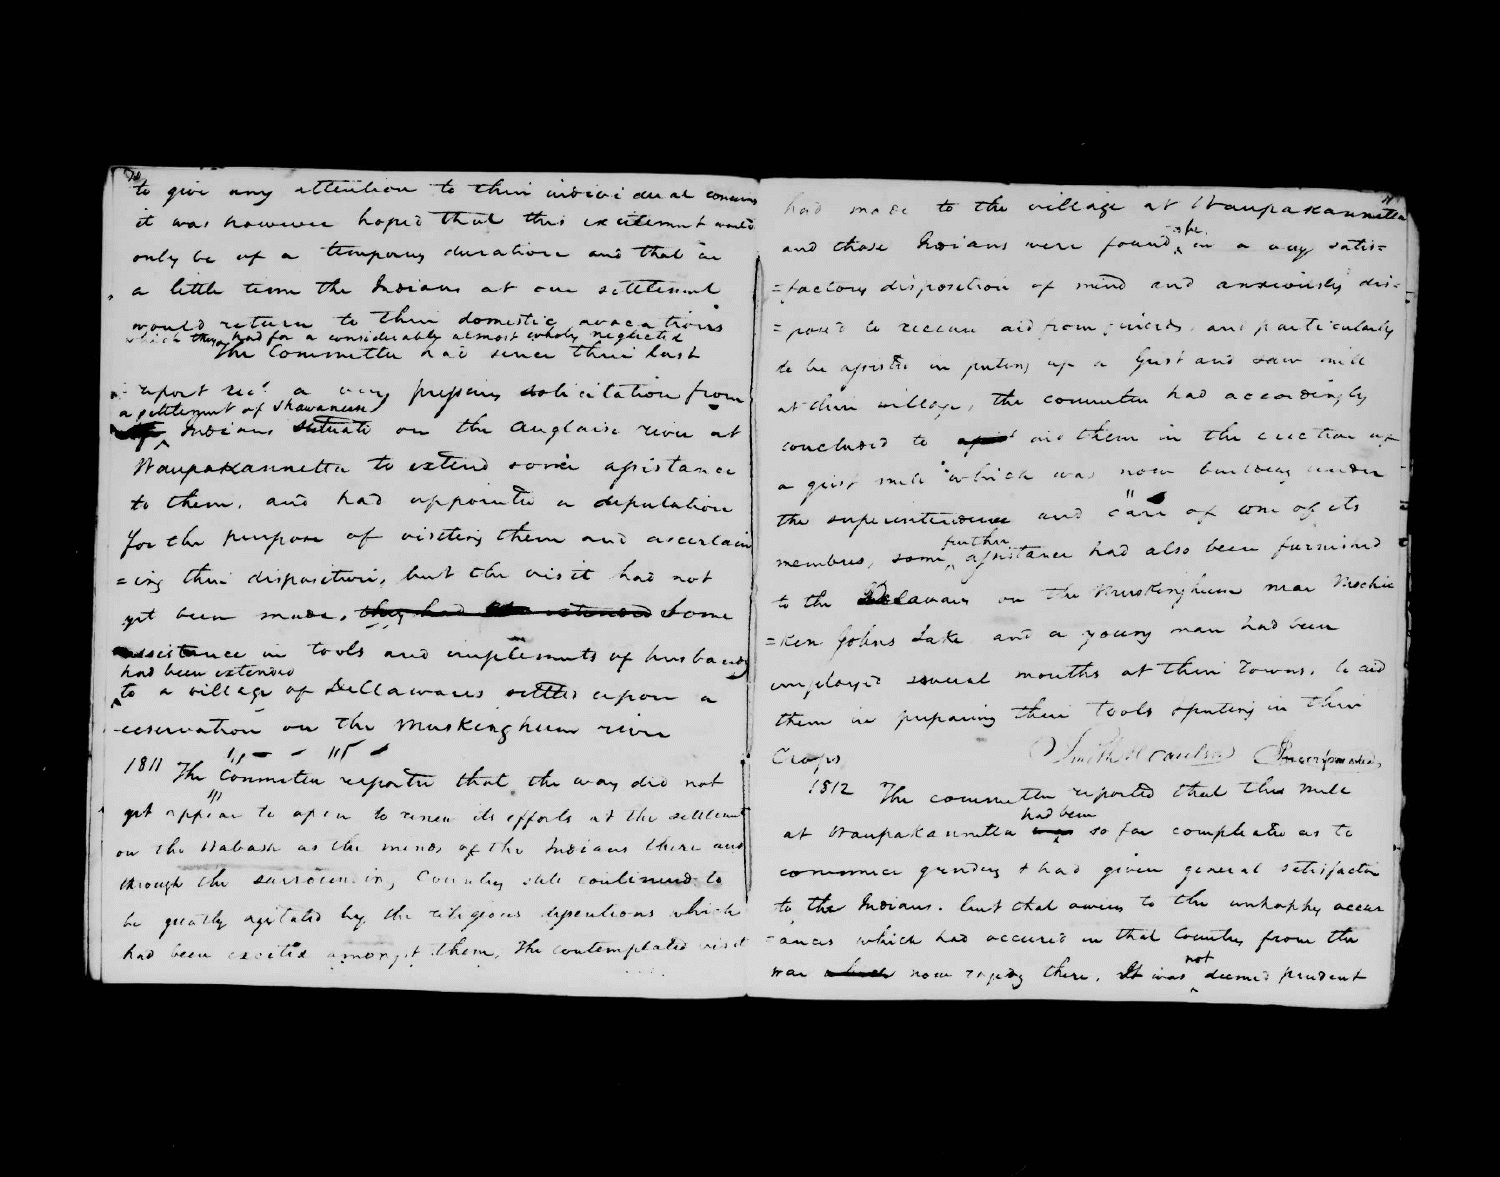 70
to give any attention to their individual concerns
it was however hoped that this excitement would
only be of a temporary duration and that in
a little time the Indians at our settlement
would return to their domestic avocations
which they had for a considerably almost wholy neglected
The Committee had since their last
report recd a very pressing solicitation from
a settlement of Shawanese
Indians situate on the Auglaise river at
Waupakannetta to extend some assistance
to them, and had appointed a deputation
for the purpose of visiting them and ascertain
=ing their disposition, but the visit had not
yet been made, they had extended Some
assistance in tools and implements of husbandry
had been extended
to a village of Dellawares settled upon a
reservation on the Muskinghum river
1811 The Committee reported that the way did not
yet appear to open to renew its efforts at the settlement
on the Wabash as the minds of the Indians there and
through the surrounding Country still continued to
be greatly agitated by the religious dissentions which
had been excited amongst them, The contemplated visit
had made to the village at Waupakannetta
and those Indians were found to be in a very satis=
=factory disposition of mind and anxiously dis=
=posed to receive aid from friends and particularly
to be assisted in puting up a Grist and saw mill
at their village, the committee had accordingly
concluded to aid them in the erection of
a grist mill which was now building under
the superintendence and care of one of its
members, some further assistance had also been furnished
to the Delawares on the Muskinghum near
=ken Johns Lake and a young man had been
employed several months at their Towns, to aid
them in preparing their Tools & puting in their
Crops
1812 The committee reported that the mill
at Waupakannetta was had been so far compleated as to
commence grinding & had given general satisfaction
to the Indians. but that owing to the unhappy occur
=ances which had occured in that Country from the
war which now raging there, It was not deemed prudent